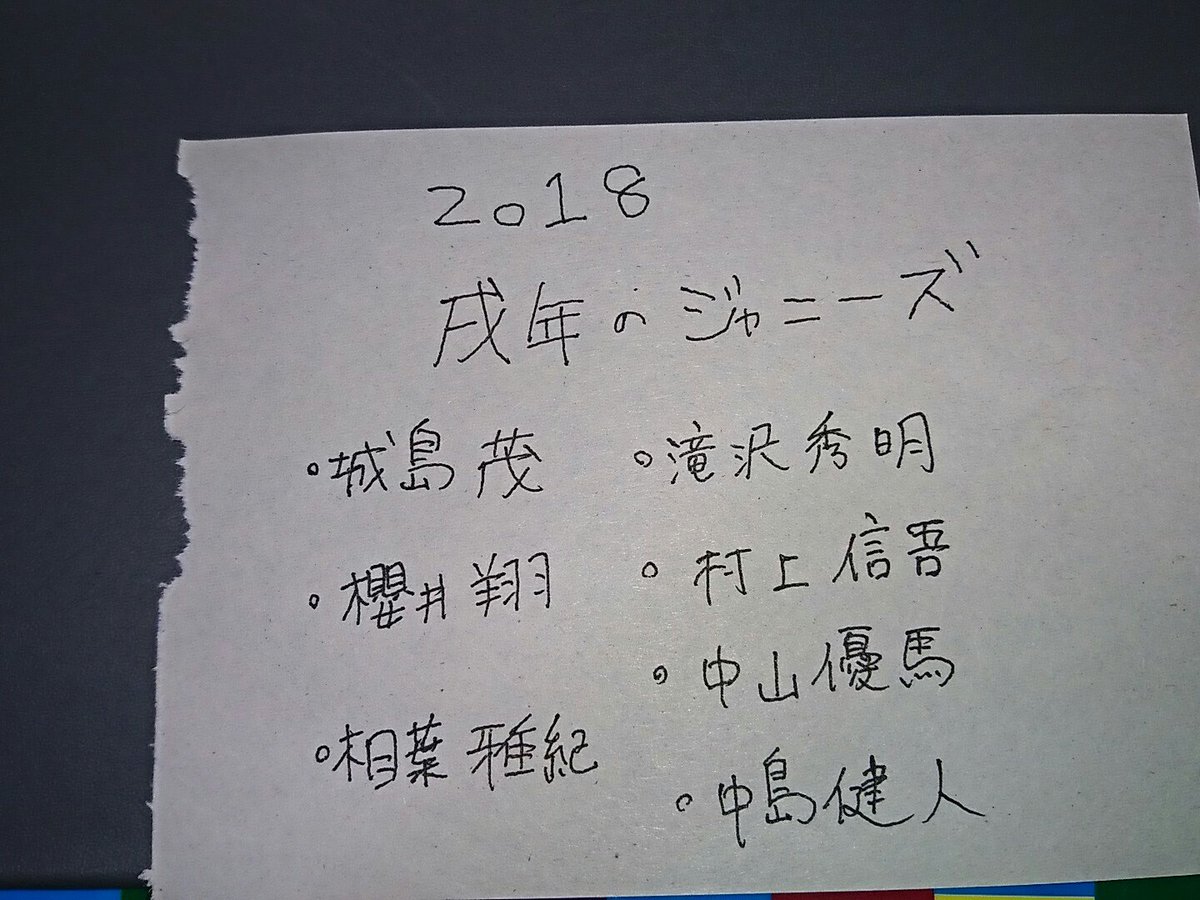 2018
戌年のジャニーズ
。城島茂
。櫻井翔
。相葉雅紀
。滝沢秀明
。村上信吾
。中山優馬
。中島健人